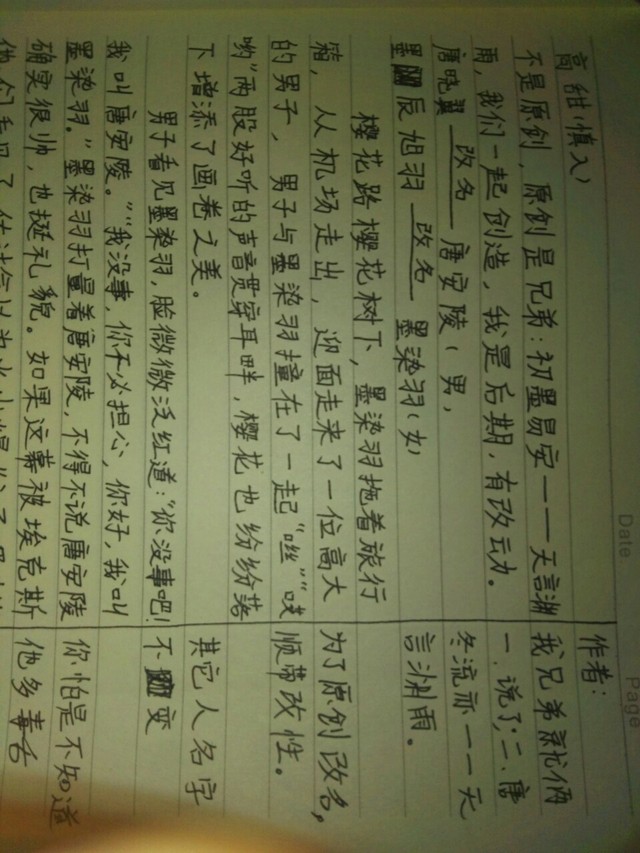 高甜(慎入)
不是原创,原创是兄弟:初墨易安——天言渊
雨,我们一起创造,我是后期,有改动。
唐晓翼 改名 唐安陵(男,
墨 辰旭羽 改名 墨染羽(女)
樱花路樱花树下,墨染羽拖着旅行
箱,从机场走出,迎面走来了一位高大
的男子,男子与墨染羽撞在了一起“咝”“哎
哟”两股好听的声音贯穿耳畔,樱花也纷纷落
下增添了画卷之美。
男子看见墨染羽,脸微微泛红道:“你没事吧!
我叫唐安陵。”“我没事,你不必担心,你好,我叫
墨染羽。”墨染羽打量着唐安陵,不得不说唐安陵
确实很帅,也挺礼貌。如果这幕被埃克斯
作者:
我兄弟就俩
一.说了;二.唐
冬流亦——天
言渊雨。
为了原创改名,
顺带改性。
其它人名字
不变
你怕是不知道
他多毒舌
Date
Page